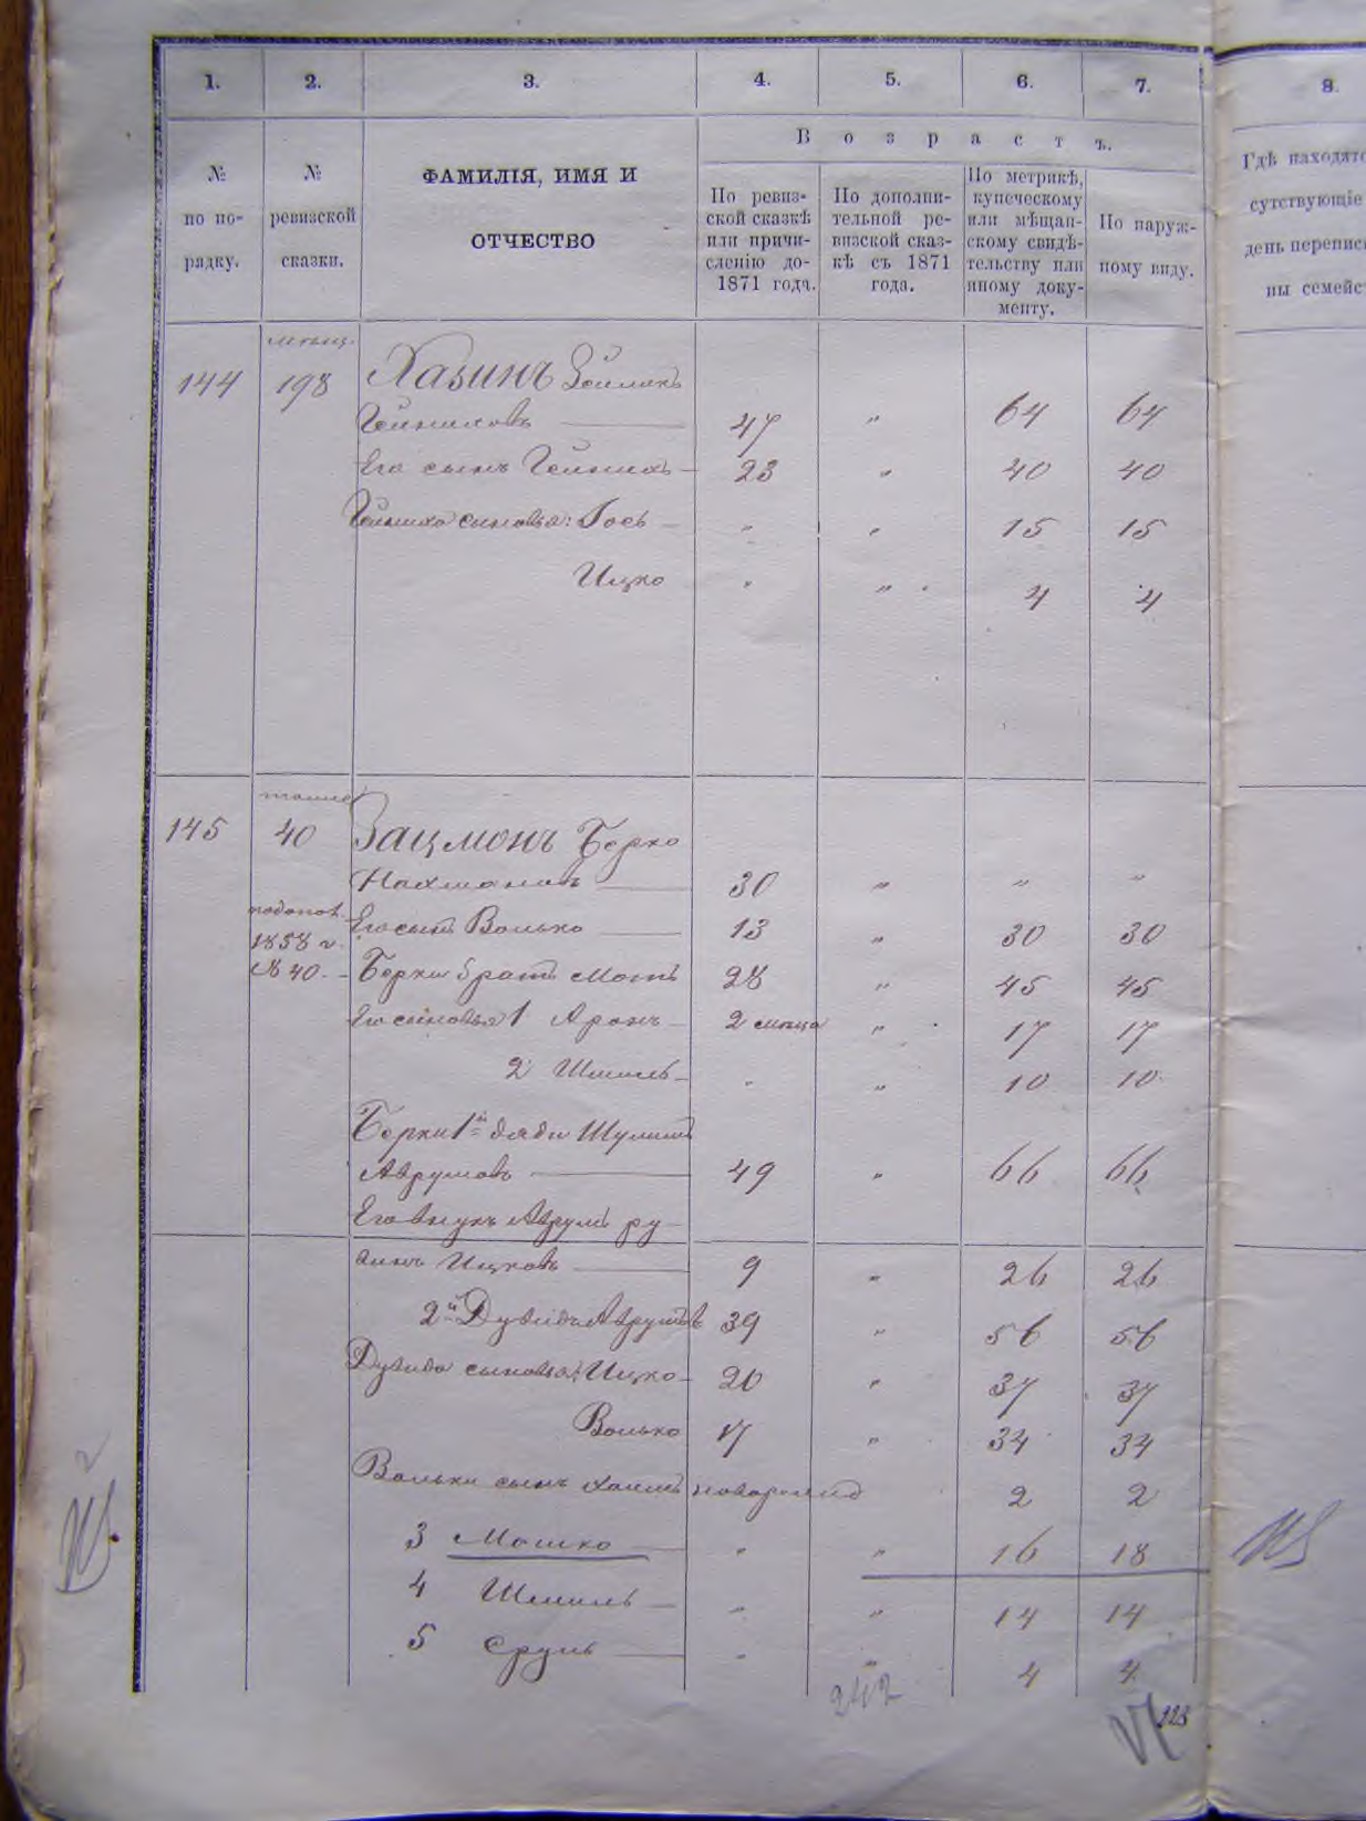 1. 2. 3. 4. 5. 6. 7. 8.
№ по по-рядку.
№ ревизской сказки.
ФАМИЛІЯ, ИМЯ И
ОТЧЕСТВО
Возрастъ.
По ревиз-
ской сказкѣ
или причи-
сленію до-
1871 года.
По дополни-
тельной ре-
визской сказ-
кѣ съ 1871
года.
По метрикѣ,
купеческому
или мѣщан-
скому свидѣ-
тельству или
иному доку-
менту.
По наруж-
ному виду.
Гдѣ находятс
сутствующіе
день переписи
ны семейс
мѣщ.
144 198 Хазинъ
47 " 64 64
Его сынъ 23 " 40 40
сыновья: Іось " " 15 15
Ицко " " 4 4
145 40 Зацмонъ Берко
Нахмановъ 30 " " "
1858 г. Его сынъ Волько 13 " 30 30
№ 40. Берки братъ Мотъ 28 " 45 45
Его сыновья 1 Аронъ 2 мѣсца " 17 17
2 Шмиль " " 10 10
Берки 1й дядя Шулимъ
Аврумовъ 49 " 66 66
Его внукъ Аврумъ ру-
Ицковъ 9 " 26 26
2й Дувидъ Аврумовъ 39 " 56 56
Дувида сыновья: Ицко 20 " 37 37
Волько 17 " 34 34
Вольки сынъ Хаимъ новорожд 2 2
3 Мошко " " 16 18
4 Шмиль " " 14 14
5 Сруль " " 4 4
242
223